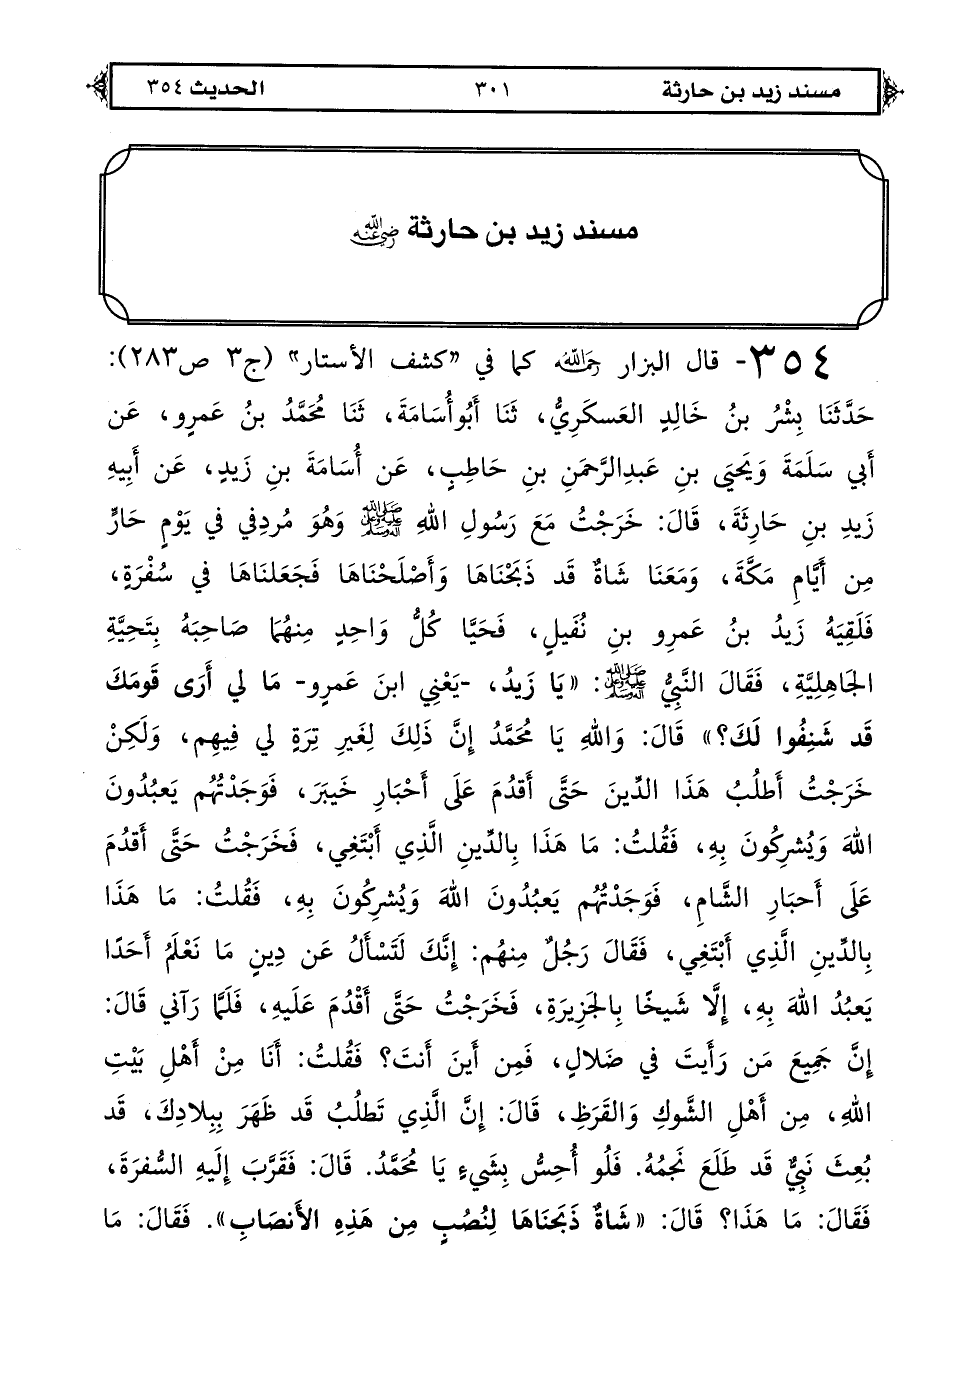 مسند زيد بن حارثة ٣٠١ الحديث ٣٥٤
مسند زيد بن حارثة رضي الله عنه
٣٥٤- قال البزار رحمه الله كما في «كشف الأستار» (ج٣ ص٢٨٣):
حَدَّثَنَا بِشْرُ بنُ خَالِدٍ العَسكَرِيُّ، ثَنَا أَبُوأُسَامَةَ، ثَنَا مُحَمَّدُ بنُ عَمرٍو، عَن
أَبِي سَلَمَةَ وَيَحيَى بنِ عَبدِالرَّحمَنِ بنِ حَاطِبٍ، عَن أُسَامَةَ بنِ زَيدٍ، عَن أَبِيهِ
زَيدِ بنِ حَارِثَةَ، قَالَ: خَرَجْتُ مَعَ رَسُولِ اللهِ ﷺ وَهُوَ مُردِفِي فِي يَوْمٍ حَارٍّ
مِن أَيَّامِ مَكَّةَ، وَمَعَنَا شَاةٌ قَد ذَبَحْنَاهَا وَأَصْلَحْنَاهَا فَجَعَلنَاهَا فِي سُفْرَةٍ،
فَلَقِيَهُ زَيدُ بنُ عَمرِو بنِ نُفَيلٍ، فَحَيَّا كُلُّ وَاحِدٍ مِنهُمَا صَاحِبَهُ بِتَحِيَّةِ
الجَاهِلِيَّةِ، فَقَالَ النَّبِيُّ ﷺ: «يَا زَيدُ، -يَعْنِي ابنَ عَمرٍو- مَا لِي أَرَى قَومَكَ
قَد شَنِفُوا لَكَ؟» قَالَ: وَاللهِ يَا مُحَمَّدُ إِنَّ ذَلِكَ لِغَيرِ تِرَةٍ لِي فِيهِم، وَلَكِنْ
خَرَجْتُ أَطلُبُ هَذَا الدِّينَ حَتَّى أَقدُمَ عَلَى أَحْبَارِ خَيبَرَ، فَوَجَدْتُهُم يَعبُدُونَ
اللهَ وَيُشرِكُونَ بِهِ، فَقُلتُ: مَا هَذَا بِالدِّينِ الَّذِي أَبْتَغِي، فَخَرَجْتُ حَتَّى أَقدُمَ
عَلَى أَحبَارِ الشَّامِ، فَوَجَدْتُهُم يَعبُدُونَ اللهَ وَيُشرِكُونَ بِهِ، فَقُلتُ: مَا هَذَا
بِالدِّينِ الَّذِي أَبْتَغِي، فَقَالَ رَجُلٌ مِنهُم: إِنَّكَ لَتَسْأَلُ عَن دِينٍ مَا نَعْلَمُ أَحَدًا
يَعبُدُ اللهَ بِهِ، إِلَّا شَيخًا بِالجَزِيرَةِ، فَخَرَجْتُ حَتَّى أَقْدُمَ عَلَيهِ، فَلَمَّا رَآنِي قَالَ:
إِنَّ جَمِيعَ مَن رَأَيتَ فِي ضَلالٍ، فَمِن أَينَ أَنتَ؟ فَقُلتُ: أَنَا مِنْ أَهْلِ بَيْتِ
اللهِ، مِن أَهْلِ الشَّوكِ وَالقَرَظِ، قَالَ: إِنَّ الَّذِي تَطلُبُ قَد ظَهَرَ بِبِلادِكَ، قَد
بُعِثَ نَبِيٌّ قَد طَلَعَ نَجمُهُ. فَلَو أُحِسُّ بِشَيءٍ يَا مُحَمَّدُ. قَالَ: فَقَرَّبَ إِلَيهِ السُّفرَةَ،
فَقَالَ: مَا هَذَا؟ قَالَ: «شَاةٌ ذَبَحنَاهَا لِنُصُبٍ مِن هَذِهِ الأَنصَابِ». فَقَالَ: مَا